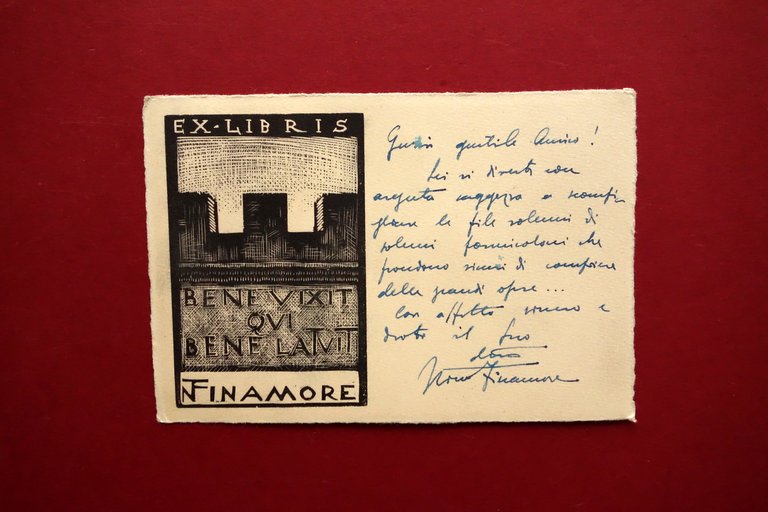 EX-LIBRIS
BENE VIXIT
QVI
BENE LATVIT
NFINAMORE
gentile Amico!
Lei si diverte con
arguta saggezza a scomfi
le file solenni di
solenni formicoloni che
prendono di compiere
delle grandi opere...
Con affetto sincero e
devoto il Suo
Finamore